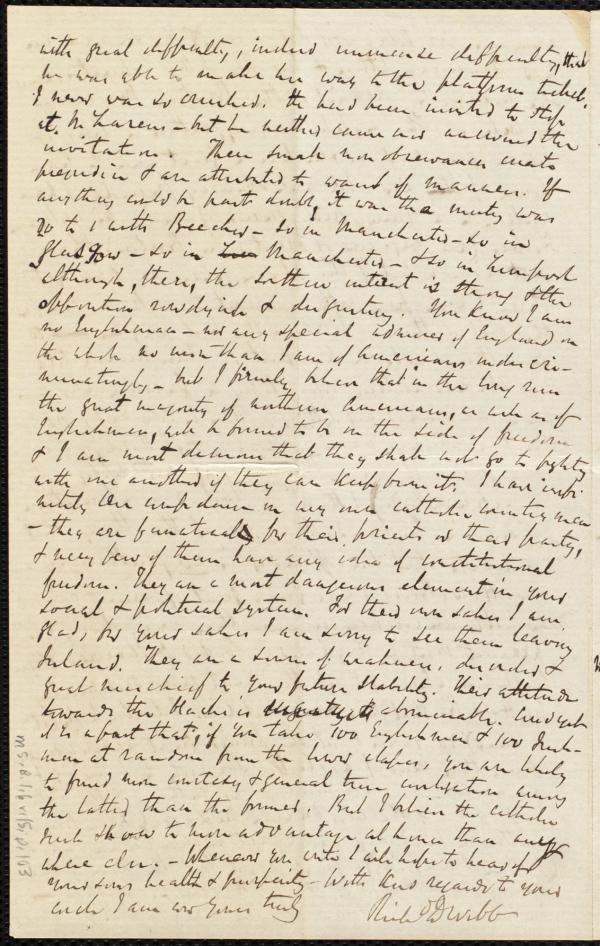 with great difficulty, indeed immense difficulty, that
he was able to make his way to the platform
I never was so crushed. He had been invited to stop
at McLarens - but he neither came nor answered the
invitation. These small non observances create
prejudice & are attributed to want of manners. If
anything could be past doubt, it was the meeting was
20 to 1 with Beecher - So in Manchester - So in
Glasgow - so in Manchester - & so in Liverpool
although, there, the Southern interest is strong & the
opposition rowdyish & disgusting. You know I am
no Englishman - nor any special admirer of England on
the whole no more than I am of Americans indiscri-
minatingly - but I firmly believe that in the long run
the great majority of northern Americans, as well as of
Englishmen, will be found to be on the side of freedom
& I am most desirous that they shall not go to fighting
with one another if they can keep from it. I have infi-
nitely less confidence in my own catholic countrymen
- they are fanatical for their priests or their party,
& very few of them have any idea of constitutional
freedom. They are a most dangerous element in your
social & political system. For their own sakes I am
glad, for your sakes I am sorry to see them leaving
Ireland. They are a source of weakness, disorder &
great mischief to your future stability. Their attitude
towards the blacks is abominable. And yet
it is a fact that, if you take 100 Englishmen & 100 Irish-
men at random from the lower classes, you are likely
to find more courtesy & general true civilisation among
the latter than the former. But I believe the catholic
Irish show to more advantage at home than any
where else. - Whenever you write I will hope to hear of
your sons health & prosperity - With kind regards to your
circle I am ever yours truly
Richd D Webb
Ms.B.1.6 v.9, p.163